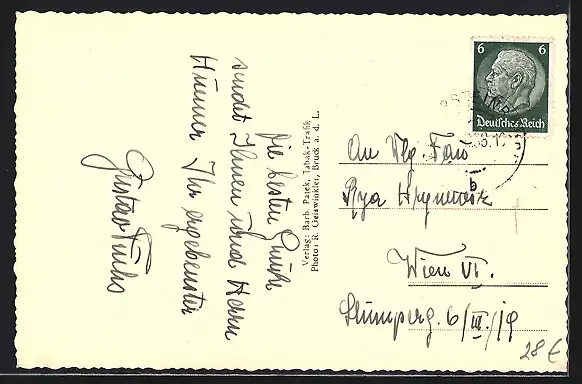 Die besten Grüße
sendet Ihnen und Herrn
Ihr ergebenster
Gustav Fuchs
Verlag: Barb. Patek, Tabak-Trafik
Photo: R. Geiswinkler, Bruck a. d. L.
6 6
Deutsches Reich
b
An Wlg. Frau
Wien VI.
Stumperg. 6/III./19
28 €